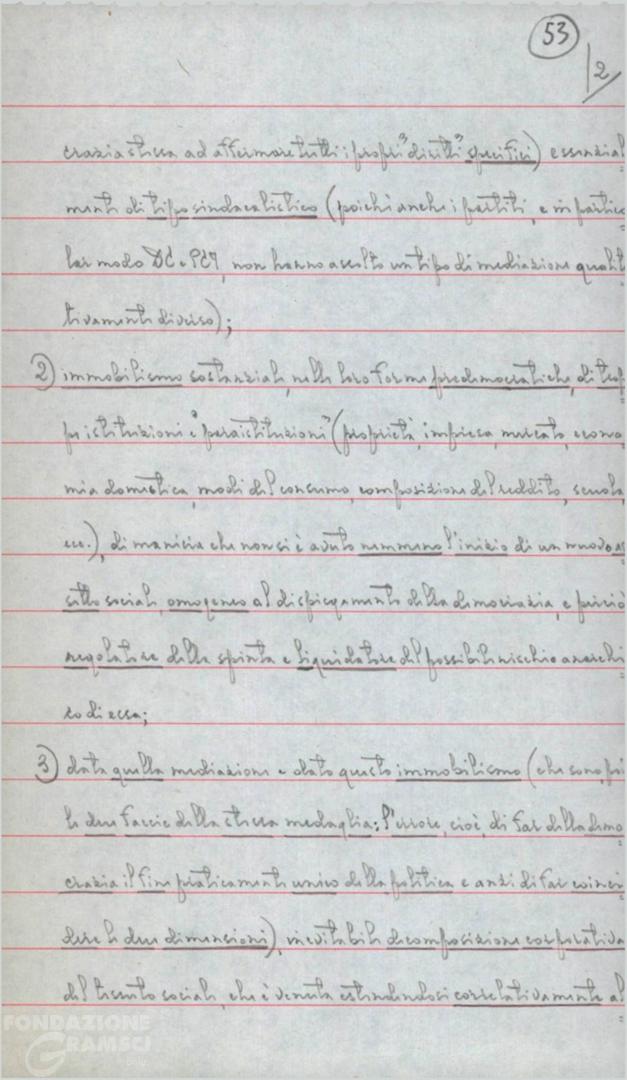 53
/2
crazia stessa ad affermare tutti i propri "diritti" specifici) essenzial
mente di tipo sindacalistico (poiché anche i partiti, e in partico
lar modo DC e PCI, non hanno assolto un tipo di mediazione qualit
tivamente diverso);
2) immobilismo sostanziale, nelle loro forme predemocratiche, di trop
pe istituzioni e "paraistituzioni" (proprietà, impresa, mercato, econo
mia domestica, modi del consumo, composizione del reddito, scuola,
ecc.), di maniera che non si è avuto nemmeno l'inizio di un nuovo as
setto sociale, omogeneo al dispiegamento della democrazia, e perciò
regolatore della spinta e liquidatore del possibile rischio anarchi
co di essa;
3) data quella mediazione e dato questo immobilismo (che sono, poi
le due faccie della stessa medaglia: l'errore, cioè, di far della demo
crazia il fine praticamente unico della politica e anzi di far coinci
dere le due dimensioni), inevitabile decomposizione corporativa
del tessuto sociale, che è venuta estendendosi correlativamente al
FONDAZIONE
GRAMSCI